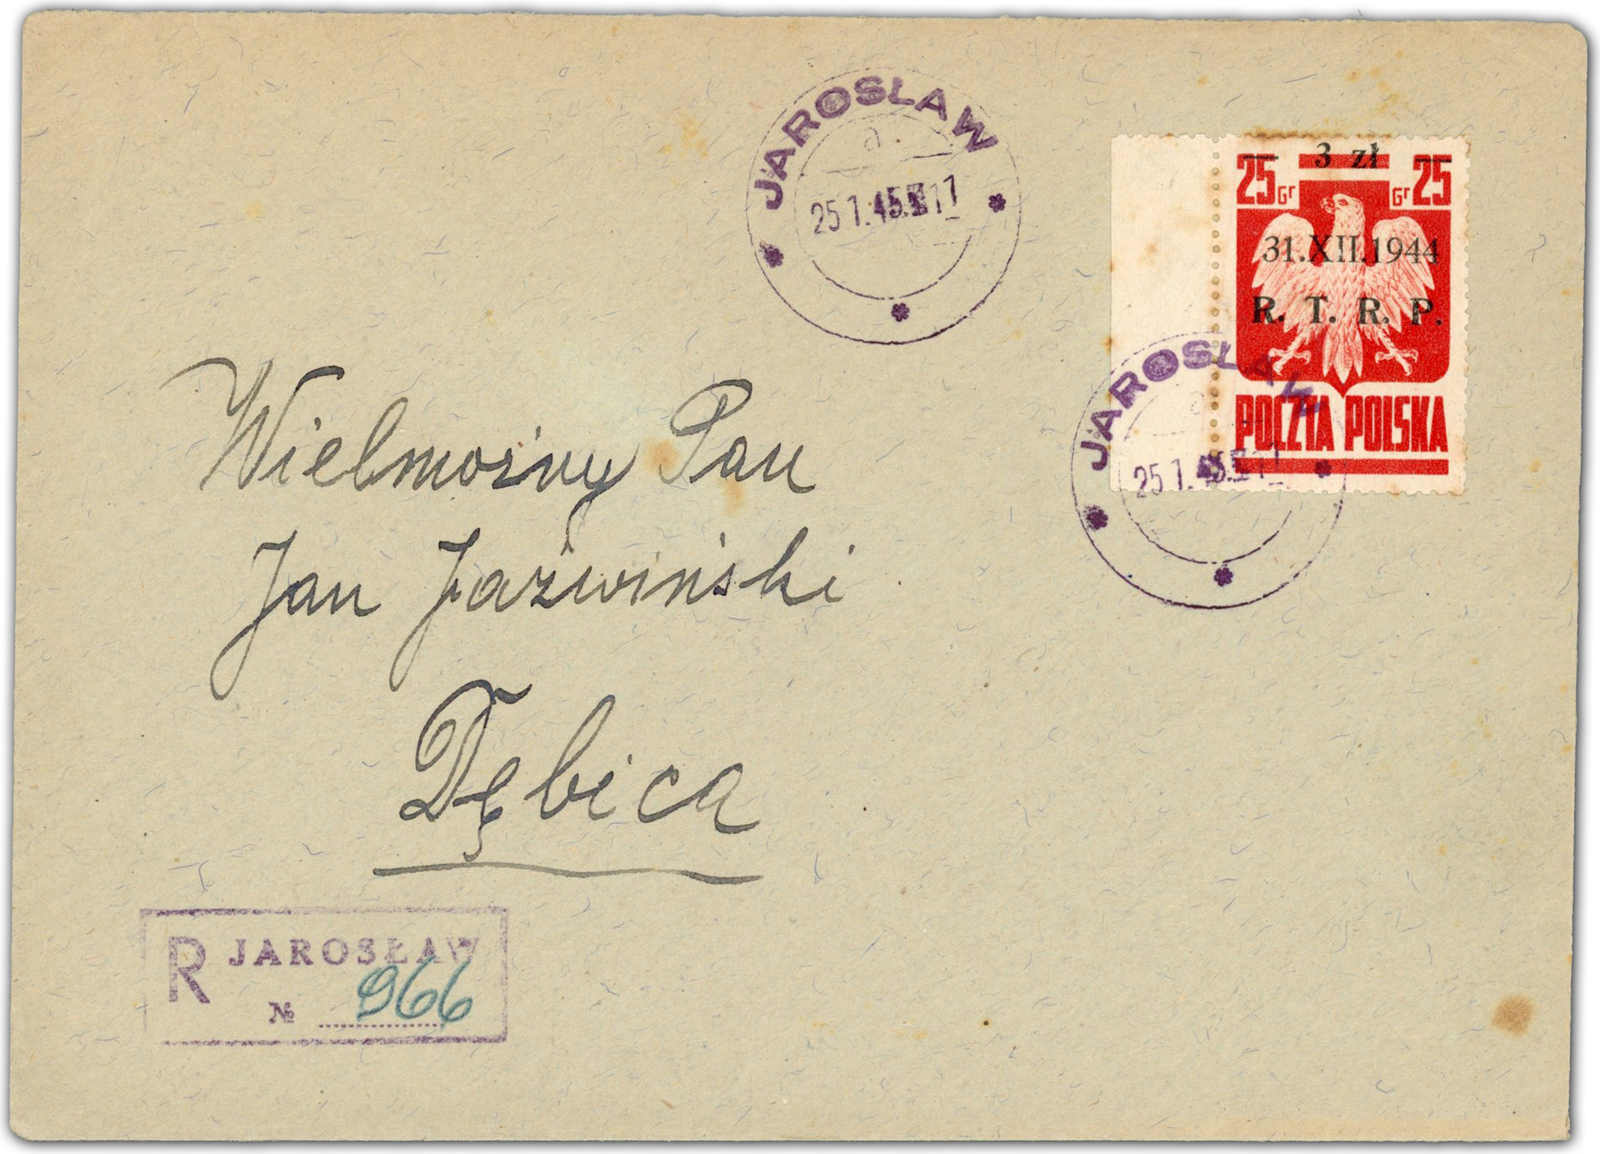 JAROSŁAW
a
25 1.45.
3 zł
25 Gr Gr 25
31.XII.1944
R. T. R. P.
POCZTA POLSKA
JAROSŁAW
a
25 1.45.
Wielmożny Pan
Jan Jaźwiński
Dębica
R JAROSŁAW
№ 966